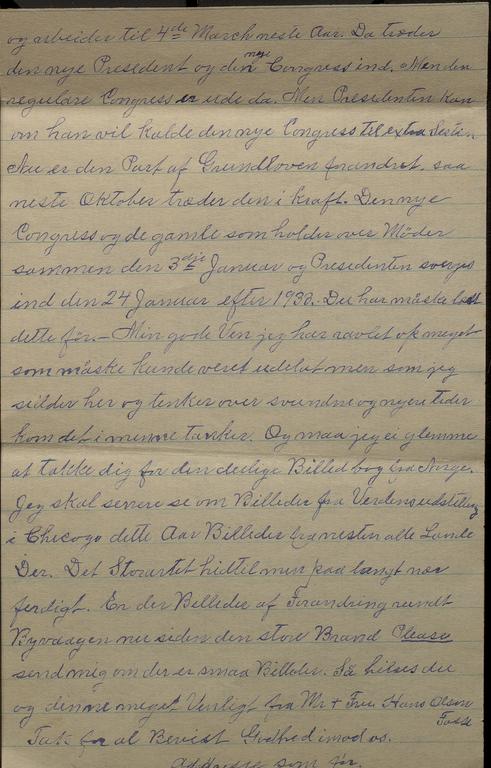 og arbeider til 4de March neste Aar. Da træder
den nye President og den nye Congress ind. Men den
regulære Congress er ude da. Men Presidenten kan
om han vil kalde den nye Congress til extra Sesten
Nu er den Part af Grundloven forandret, saa
neste Oktober træder den i kraft. Den nye
Congress og de gamle som holder over Möder
sammen den 3dje Januar og Presidenten sverges
ind den 24 Januar efter 1933. Du har måske læst
dette för. – Min gode Ven jeg har ravlet op meget
som måske kunde veret udelat men som jeg
sidder her og tenker over svundne og nyere tider
kom det i minne tanker. Og maa jeg ei glemme
at takke dig for den deilige Billed bog fra Norge.
Jeg skal senere se om Billeder fra Verdensudstilling
i Checogo dette Aar Billeder fra nesten alle Lande
Der. Det Storartet hidtel men paa langt nær
ferdigt. Er der Billeder af Forandring rundt
Byvaagen nu siden den store Brand Please
send mig om der er smaa Billeder. Så hilses du
og dinne meget Venligt fra Mr + Fru Hans Olson
Fosse
Tak for al Bevist Godhed imod os.
Addresse som för.